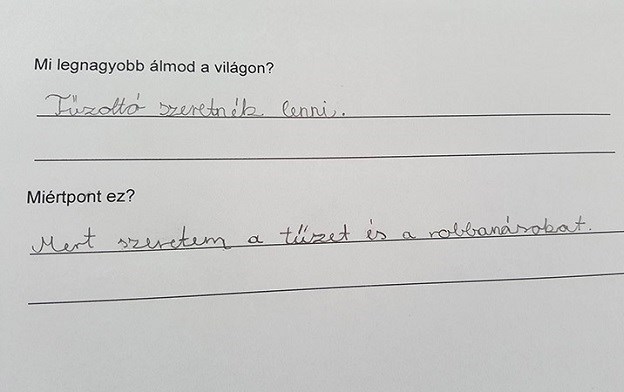 Mi legnagyobb álmod a világon?
Tűzoltó szeretnék lenni.
Miértpont ez?
Mert szeretem a tüzet és a robbanásokat.